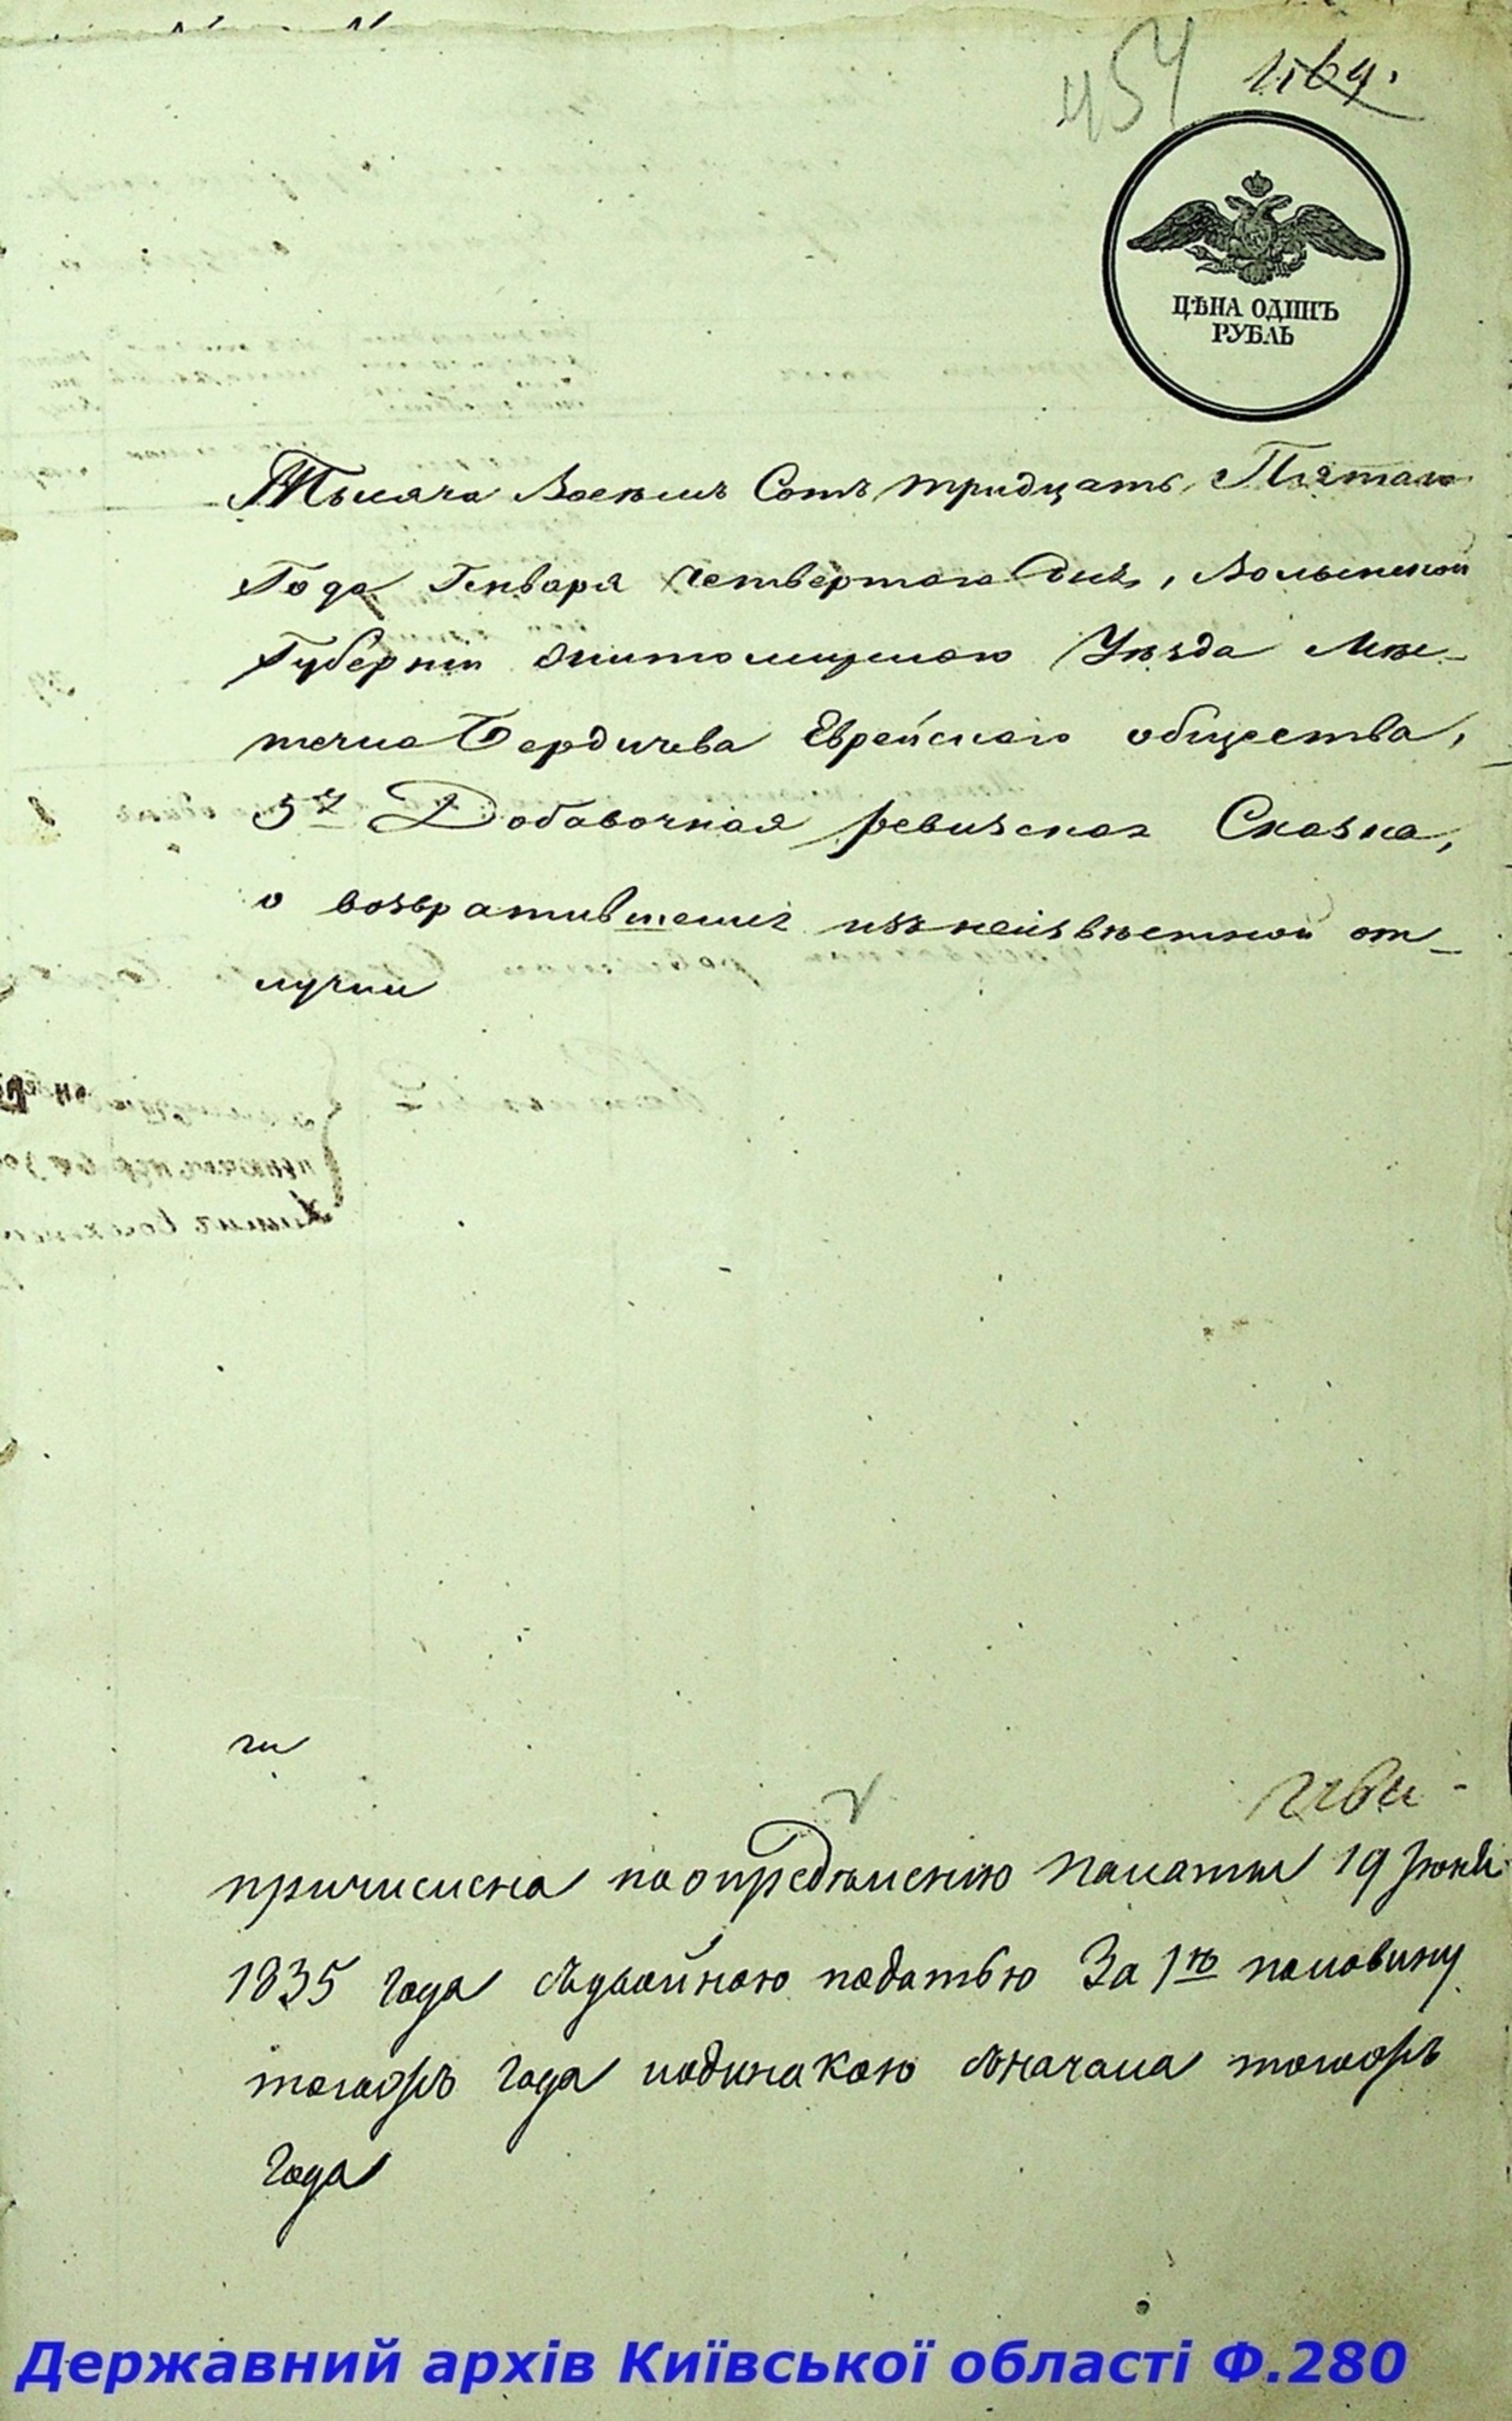 454
1164.
ЦѢНА ОДИНЪ
РУБЛЬ
Тысяча Восемь Сотъ тридцать Пятаго
Года Генваря Четвертаго Дня, Волынской
Губерніи Житомирскаго Уѣзда Мѣс-
течка Бердичева Еврейскаго общества,
5я Добавочная ревизская Сказка,
о возвратившемся изъ неизвѣстной от-
лучки
причислена по опредѣленію палаты 19 Іюня
1835 года съ двойною податью За 1ю половину
тогожъ года и одинакою съ начала тогожъ
года
Державний архів Київської області Ф.280